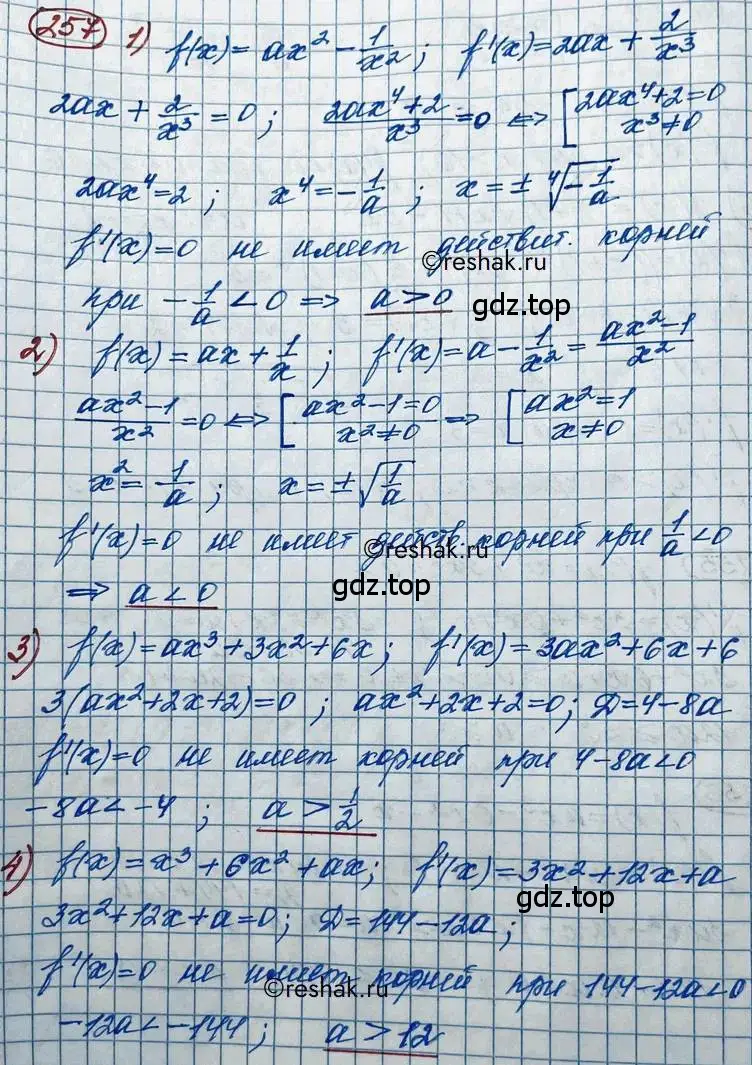 257 1) f(x) = ax² - 1/x²; f'(x) = 2ax + 2/x³
2ax + 2/x³ = 0; (2ax⁴+2)/x³ = 0 ⇔ [2ax⁴+2=0
x³≠0
2ax⁴=2; x⁴=-1/a; x=± ⁴√(-1/a)
f'(x)=0 не имеет действит. корней
©reshak.ru
при -1/a < 0 ⇒ a > 0
gdz.top
2) f(x) = ax + 1/x; f'(x) = a - 1/x² = (ax²-1)/x²
(ax²-1)/x² = 0 ⇔ [ax²-1=0 ⇒ [ax²=1
x²≠0 x≠0
x² = 1/a; x = ±√(1/a)
f'(x)=0 не имеет действ. корней при 1/a < 0
©reshak.ru
⇒ a < 0
gdz.top
3) f(x) = ax³+3x²+6x; f'(x) = 3ax²+6x+6
3(ax²+2x+2)=0; ax²+2x+2=0; D=4-8a
f'(x)=0 не имеет корней при 4-8a<0
-8a<-4; a > 1/2
4) f(x) = x³+6x²+ax; f'(x) = 3x²+12x+a
gdz.top
3x²+12x+a=0; D=144-12a;
f'(x)=0 не имеет корней при 144-12a<0
©reshak.ru
-12a<-144; a > 12